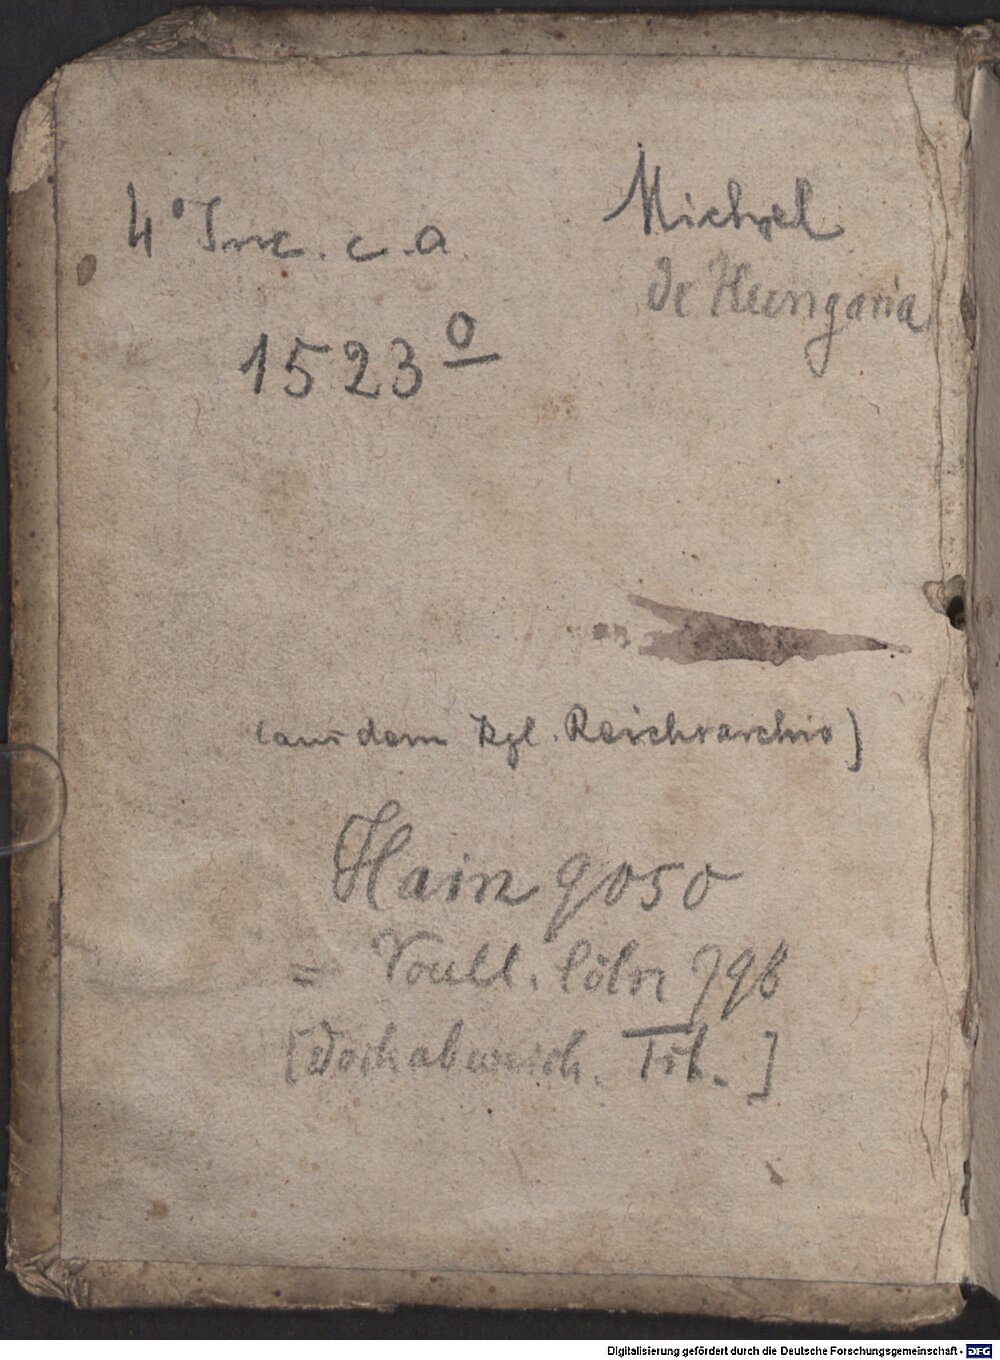 4° Inc. c. a.
1523 o
Michael
de Hungaria
(aus dem Kgl. Reichsarchiv)
Hain 9050
= Voull. Cöln 798
[doch abweich. Tit.]
Digitalisierung gefördert durch die Deutsche Forschungsgemeinschaft - DFG